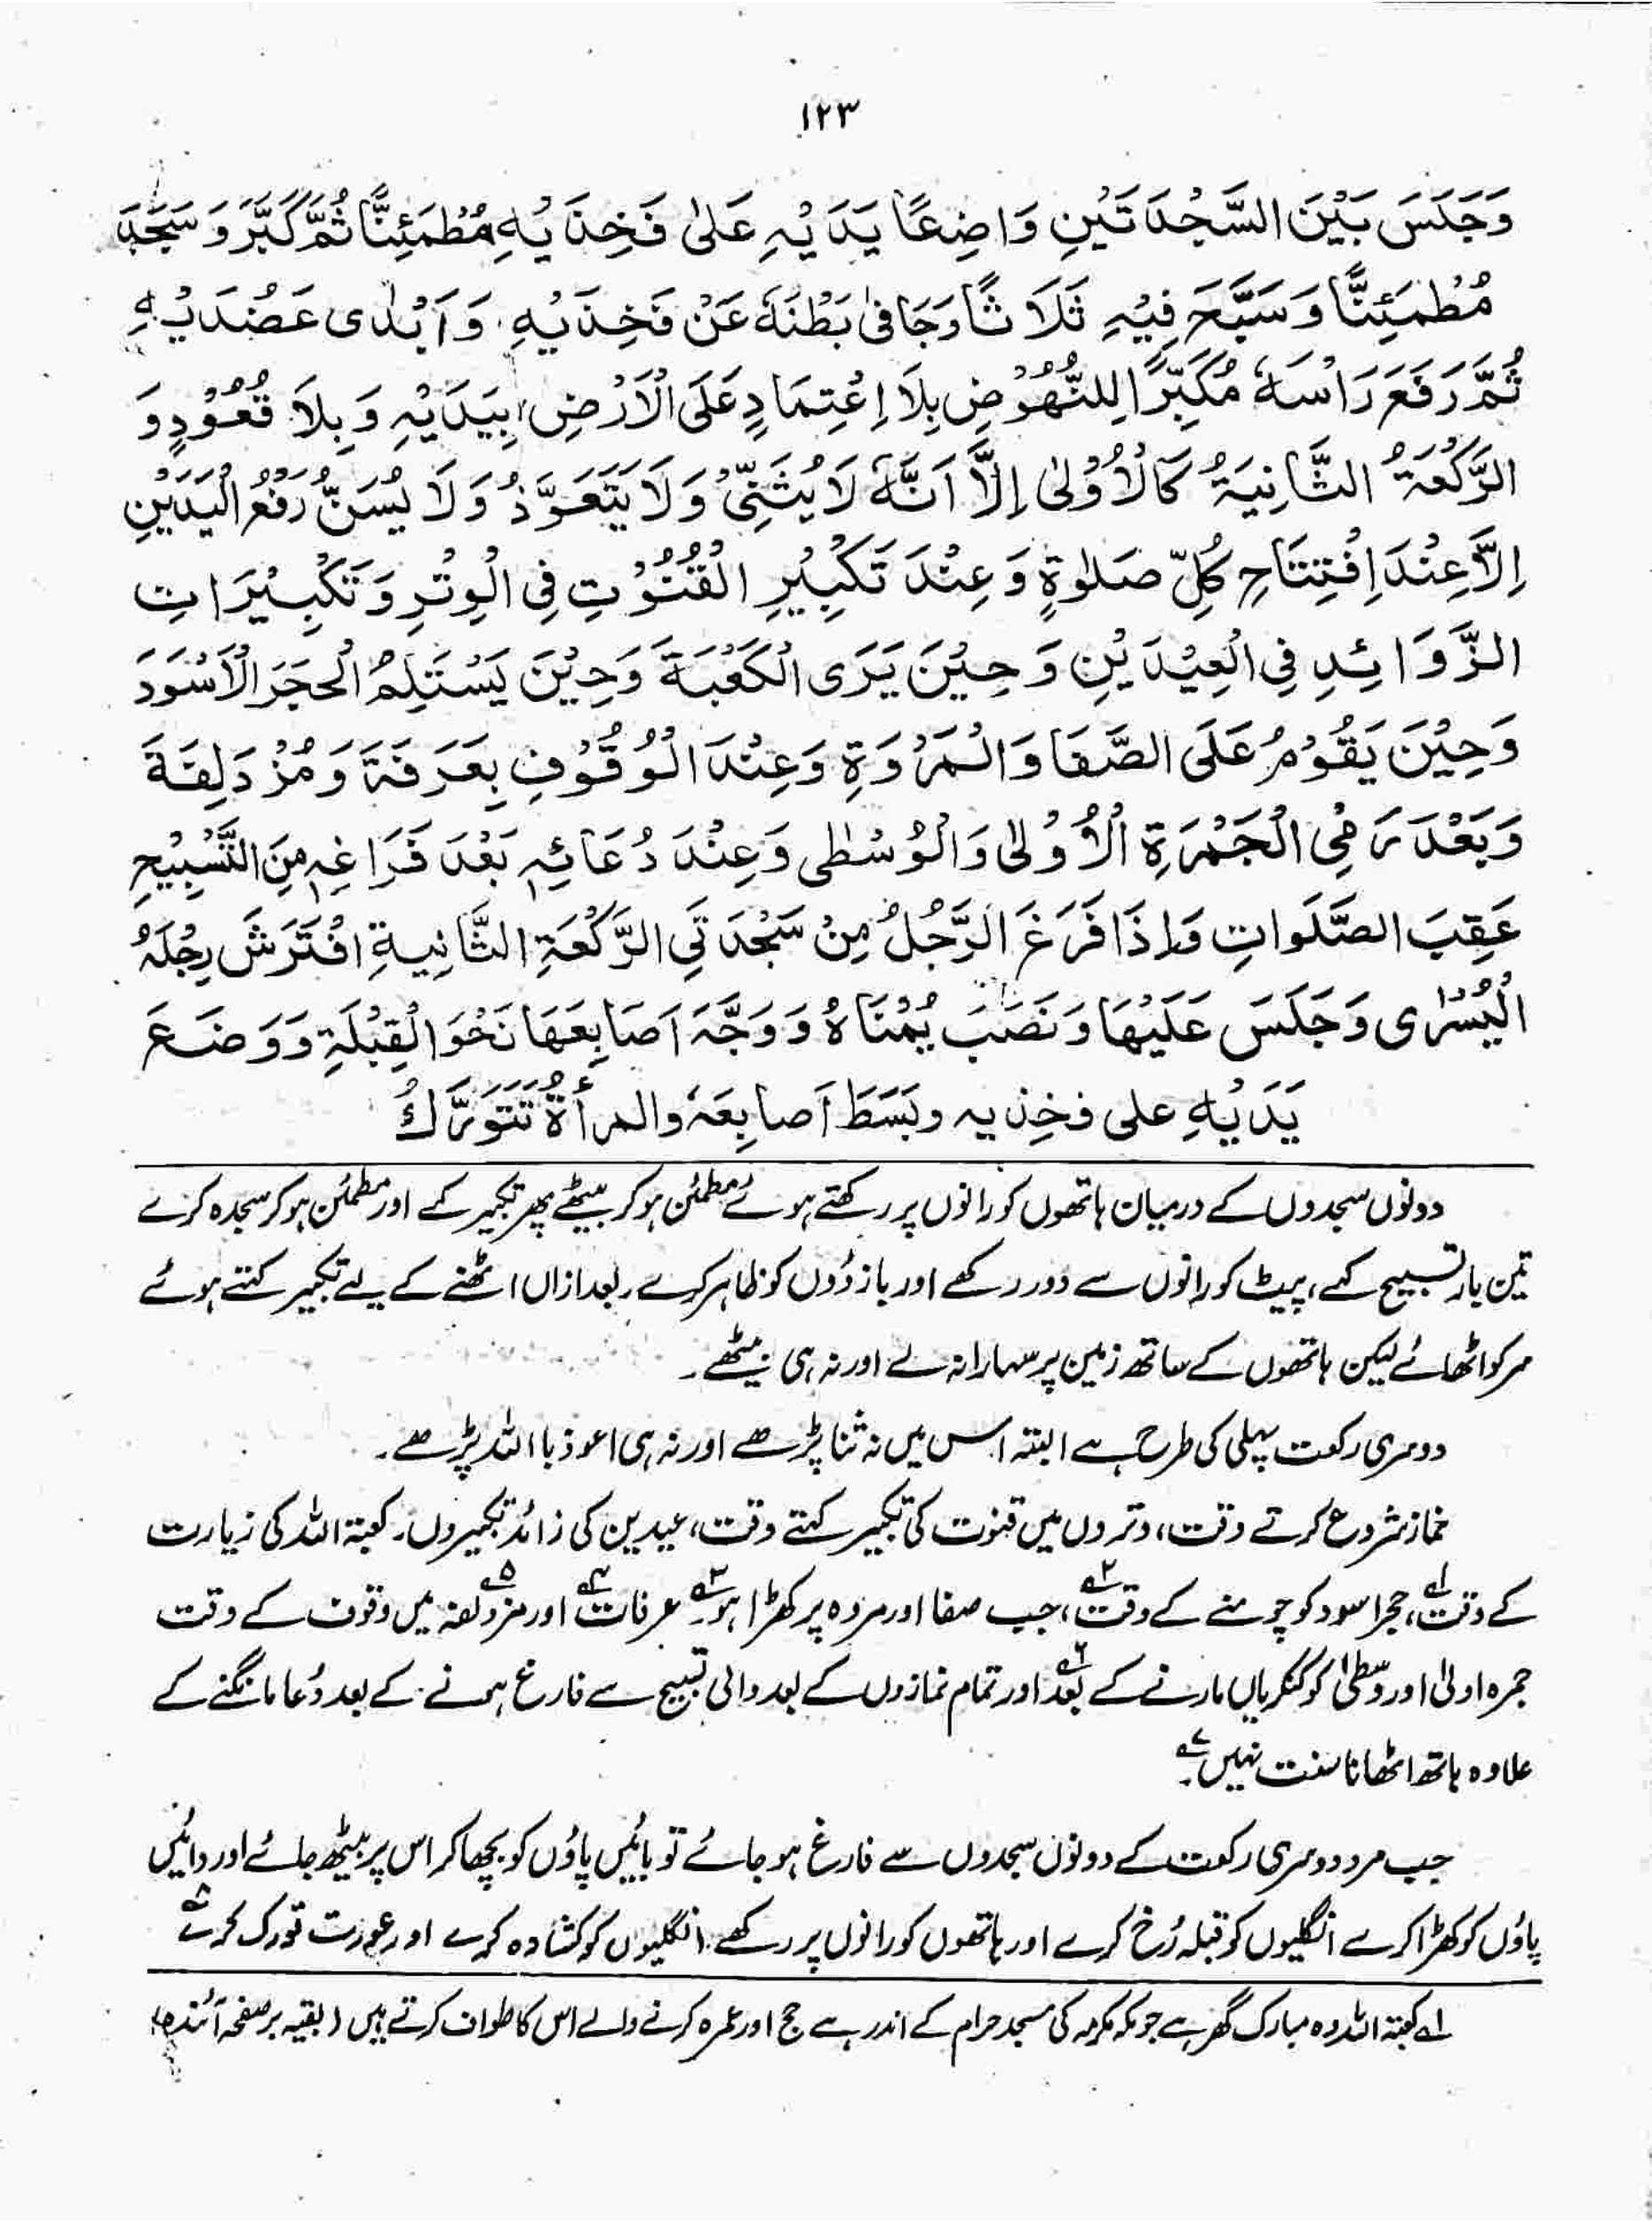 ۱۲۳
وَجَلَسَ بَيْنَ السَّجْدَتَيْنِ وَاضِعًا يَدَيْهِ عَلٰى فَخِذَيْهِ مُطْمَئِنًّا ثُمَّ كَبَّرَ وَسَجَدَ
مُطْمَئِنًّا وَسَبَّحَ فِيْهِ ثَلَاثًا وَجَافٰى بَطْنَهٗ عَنْ فَخِذَيْهِ وَاَبْدٰى عَضُدَيْهِ
ثُمَّ رَفَعَ رَاْسَهٗ مُكَبِّرًا لِلنُّهُوْضِ بِلَا اِعْتِمَادٍ عَلَى الْاَرْضِ بِيَدَيْهِ وَبِلَا قُعُوْدٍ وَ
الرَّكْعَةُ الثَّانِيَةُ كَالْاُوْلٰى اِلَّا اَنَّهٗ لَا يُثَنِّىْ وَلَا يَتَعَوَّذُ وَلَا يُسَنُّ رَفْعُ الْيَدَيْنِ
اِلَّا عِنْدَ اِفْتِتَاحِ كُلِّ صَلٰوةٍ وَعِنْدَ تَكْبِيْرِ الْقُنُوْتِ فِى الْوِتْرِ وَتَكْبِيْرَاتِ
الزَّوَائِدِ فِى الْعِيْدَيْنِ وَحِيْنَ يَرَى الْكَعْبَةَ وَحِيْنَ يَسْتَلِمُ الْحَجَرَ الْاَسْوَدَ
وَحِيْنَ يَقُوْمُ عَلَى الصَّفَا وَالْمَرْوَةِ وَعِنْدَ الْوُقُوْفِ بِعَرَفَةَ وَمُزْدَلِفَةَ
وَبَعْدَ رَمْىِ الْجَمْرَةِ الْاُوْلٰى وَالْوُسْطٰى وَعِنْدَ دُعَائِهٖ بَعْدَ فَرَاغِهٖ مِنَ التَّسْبِيْحِ
عَقِبَ الصَّلَوَاتِ وَاِذَا فَرَغَ الرَّجُلُ مِنْ سَجْدَتَىِ الرَّكْعَةِ الثَّانِيةِ افْتَرَشَ رِجْلَهُ
الْيُسْرٰى وَجَلَسَ عَلَيْهَا وَنَصَبَ يُمْنَاهُ وَوَجَّهَ اَصَابِعَهَا نَحْوَ الْقِبْلَةِ وَوَضَعَ
يَدَيْهِ على فخِذيه وبَسَطَ اَصابِعَهٗ والمرأةُ تَتَوَرَّكُ
دونوں سجدوں کے درمیان ہاتھوں کو رانوں پر رکھتے ہوئے مطمئن ہو کر بیٹھے پھر تکبیر کہے اور مطمئن ہو کر سجدہ کرے
تین بار تسبیح کہے، پیٹ کو رانوں سے دور رکھے اور بازوؤں کو ظاہر کرے۔ بعد ازاں اٹھنے کے لیے تکبیر کہتے ہوئے
سر کو اٹھائے لیکن ہاتھوں کے ساتھ زمین پر سہارا نہ لے اور نہ ہی بیٹھے۔
دوسری رکعت پہلی کی طرح ہے البتہ اس میں نہ ثنا پڑھے اور نہ ہی اعوذ باللہ پڑھے۔
نماز شروع کرتے وقت، وتروں میں قنوت کی تکبیر کہتے وقت، عیدین کی زائد تکبیروں۔ کعبۃ اللہ کی زیارت
کے وقت۱؎، حجرِ اسود کو چومنے کے وقت۲؎، جب صفا اور مروہ پر کھڑا ہو۔۳؎ عرفات۴؎ اور مزدلفہ۵؎ میں وقوف کے وقت
جمرہ اولیٰ اور وسطیٰ کو کنکریاں مارنے کے بعد۶؎ اور تمام نمازوں کے بعد والی تسبیح سے فارغ ہونے کے بعد دُعا مانگنے کے
علاوہ ہاتھ اٹھانا سنت نہیں۔۷؎
جب مرد دوسری رکعت کے دونوں سجدوں سے فارغ ہو جائے تو بائیں پاؤں کو بچھا کر اس پر بیٹھ جائے اور دائیں
پاؤں کو کھڑا کرے انگلیوں کو قبلہ رُخ کرے اور ہاتھوں کو رانوں پر رکھے انگلیوں کو کشادہ کرے اور عورت تورک کرے۸؎
۱؎ کعبۃ اللہ وہ مبارک گھر ہے جو مکہ مکرمہ کی مسجد حرام کے اندر ہے حج اور عمرہ کرنے والے اس کا طواف کرتے ہیں (بقیہ بر صفحہ آئندہ)